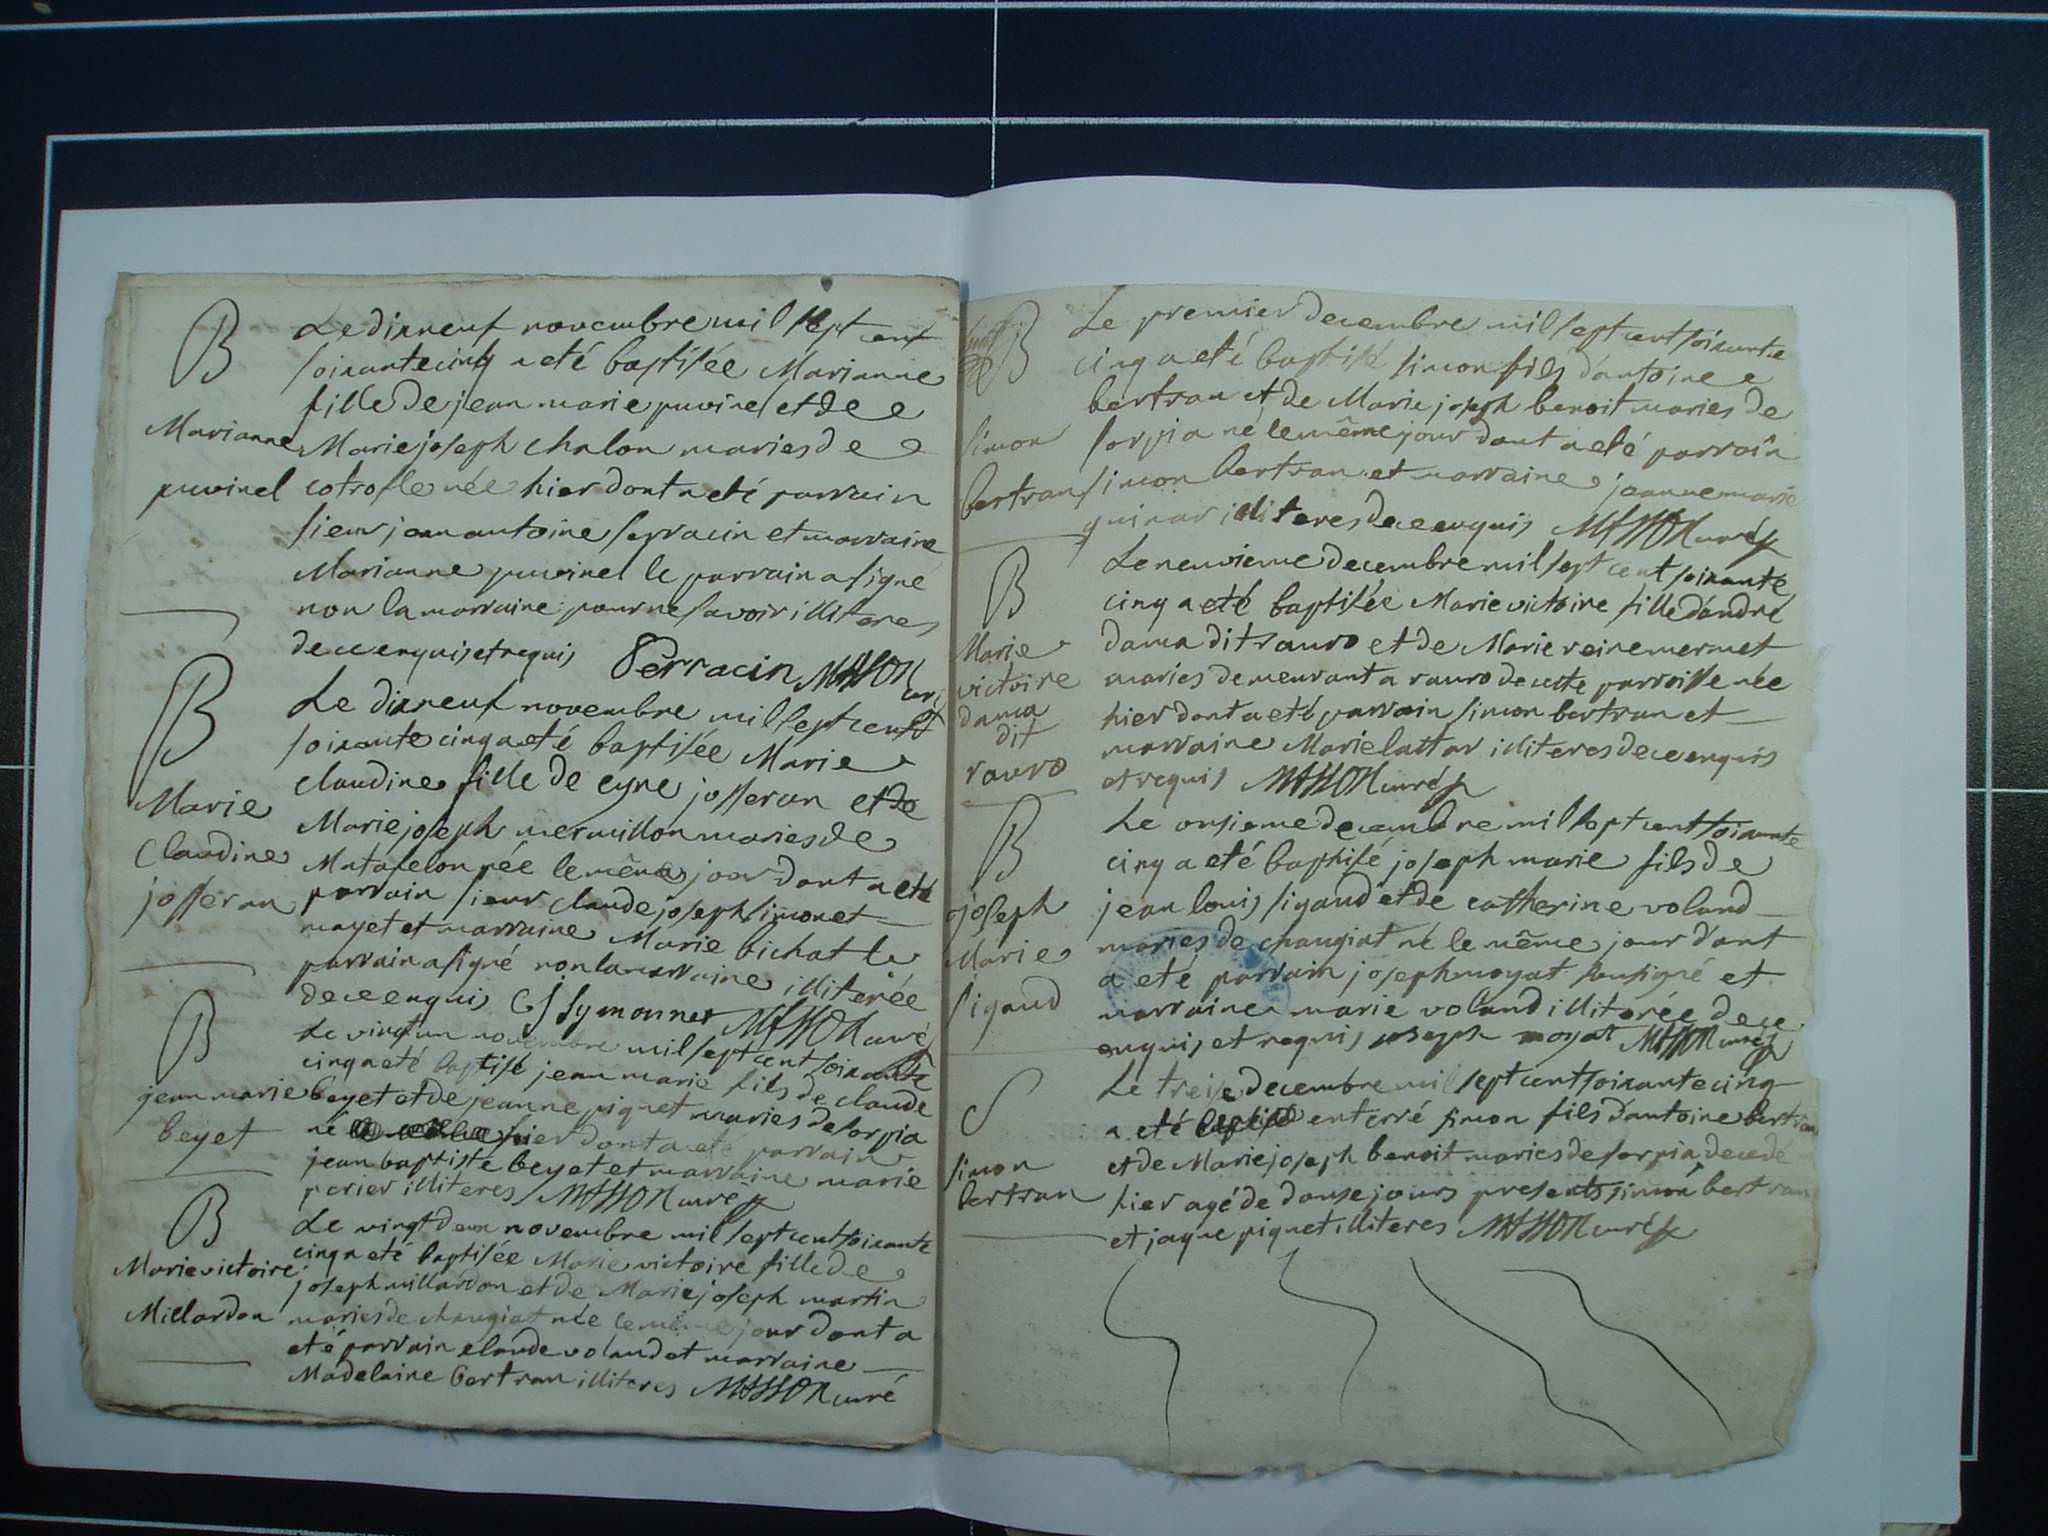 B
Marianne
puvinel
Le dixneuf novembre mil sept cent
soixante cinq a eté baptisée Marianne
fille de jean marie puvinel et de
Marie joseph chalon maries de
cotrofle née hier dont a eté parrain
sieur jean antoine perracin et marraine
Marianne puvinel le parrain a signé
non la marraine pour ne savoir illiteres
de ce enquis et requis Perracin MASSON curé
B
Marie
Claudine
josseran
Le dixneuf novembre mil sept cent
soixante cinq a eté baptisée Marie
claudine fille de eyne josseran et de
Marie joseph mermillon maries de
Matafelon née le même jour dont a eté
parrain sieur claude joseph simonet
mayet et marraine Marie bichat le
parrain a signé non la marraine illiterée
de ce enquis CJ Symonnet MASSON curé
B
jean marie
beyet
Le vingt un novembre mil sept cent soixante
cinq a eté baptisé jean marie fils de claude
beyet et de jeanne piquet maries de sorpia
né hier dont a eté parrain
jean baptiste beyet et marraine marie
perier illiteres MASSON curé
B
Marie victoire
Millardon
Le vingt deux novembre mil sept cent soixante
cinq a eté baptisée Marie victoire fille de
joseph millardon et de Marie joseph martin
maries de changiat née le même jour dont a
eté parrain claude voland et marraine
Madelaine bertran illiteres MASSON curé
B
simon
bertran
Le premier decembre mil sept cent soixante
cinq a eté baptisé simon fils d'antoine
bertran et de Marie joseph benoit maries de
sorpia né le même jour dont a eté parrain
simon bertran et marraine jeanne marie
guinar illiteres de ce enquis MASSON curé
B
Marie
victoire
dama
dit
rauro
Le neuvieme decembre mil sept cent soixante
cinq a eté baptisée Marie victoire fille d'andré
dama dit rauro et de Marie reine mermet
maries demeurant a rauro de cette parroisse née
hier dont a eté parrain simon bertran et
marraine Marie lattar illiteres de ce enquis
et requis MASSON curé
B
joseph
Marie
sigaud
Le onsieme decembre mil sept cent soixante
cinq a eté baptisé joseph marie fils de
jean louis sigaud et de catherine voland
maries de changiat né le même jour d'ont
a eté parrain joseph moyat sousigné et
marraine marie voland illiterée de ce
enquis et requis joseph moyat MASSON curé
S
simon
bertran
Le treise decembre mil sept cent soixante cinq
a eté baptisé enterré simon fils d'antoine bertran
et de Marie joseph benoit maries de sorpia decedé
hier agé de douse jours presents simon bertran
et jaque piquet illiteres MASSON curé